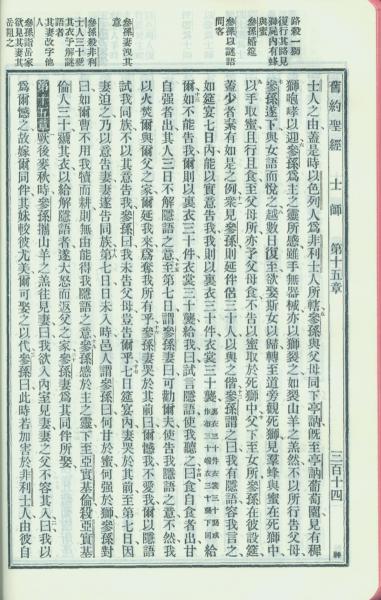 舊約聖經 士師 第十五章 三百十四 神
路殺一獅
復行其路見
獅屍內有蜂
與蜜
參孫婚筵
參孫以謎語
問客
參孫妻洩其
意
參孫殺非利
士人三十褫
其衣予解謎
語者
參孫詣岳家
欲見其妻其
妻改字他
岳阻之
士人之由蓋是時以色列人爲非利士人所轄參孫與父母同下亭訥旣至亭訥葡萄園見有稺
獅咆哮以迎參孫爲主之靈所感雖手無器械亦以獅裂之如裂山羊之羔然不以所行告父母
參孫遂下與女語而悅之越數日復至欲娶斯女以歸轉至道旁觀死獅見羣蜂與蜜在死獅中
以手取蜜且行且食至父母所亦予父母食不告以蜜取於死獅中父下至女所參孫在彼設筵
蓋少者素有如是之例衆見參孫則延伴侶三十人以與之偕參孫謂之曰我有隱語容我言之
如筵宴七日內能以實意告我我則以裏衣三十件衣裳三十襲裏衣三十件衣裳三十襲或作布三十幅衣三十襲下同給
爾如不能告我爾則以裏衣三十件衣裳三十襲給我曰試言隱語使我聽之曰食自食者出甘
自強者出其人三日不解隱語之意至第七日謂參孫妻曰可勸爾夫使告我隱語之意不然我
以火焚爾與爾父之家爾延我來爲奪我所有乎參孫妻哭於其前曰爾憾我不愛我爾以隱語
試我同族不以其意告我參孫曰我未告父母豈告爾乎七日筵宴內妻哭於其前至第七日因
妻迫之乃以意告妻妻遂告同族第七日日未入時邑人謂參孫曰何甘於蜜何強於獅參孫對
曰如爾曹不用我犢而耕則無由能得我隱語之意參孫感於主之靈下至亞實基倫殺亞實基
倫人三十褫其衣以給解隱語者遂大怒而返父之家參孫妻爲其同伴所娶
第十五章 厥後麥秋時參孫攜山羊之羔往見妻曰我欲入內室見妻妻之父不容其入曰我以
爲爾憾之故嫁爾同伴其妹較彼尤美爾可娶之以代參孫曰此時若加害於非利士人由彼自